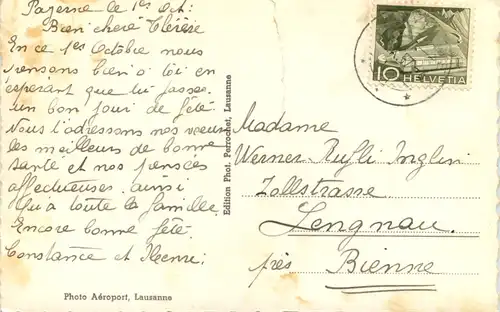 Payerne le 1er Oct:
Bien chère Thérèse
En ce 1er Octobre nous
pensons bien à toi en
espérant que tu passe
un bon jour de fête.
Nous t'adressons nos vœux
les meilleurs de bonne
santé et nos pensées
affectueuses. ainsi
qu'a toute la famille.
Encore bonne fête.
Constance et Henri.
Photo Aéroport, Lausanne
Edition Phot. Perrochet, Lausanne
10 HELVETIA
Madame
Werner Rufli Inglin
Zollstrasse
Lengnau
près Bienne